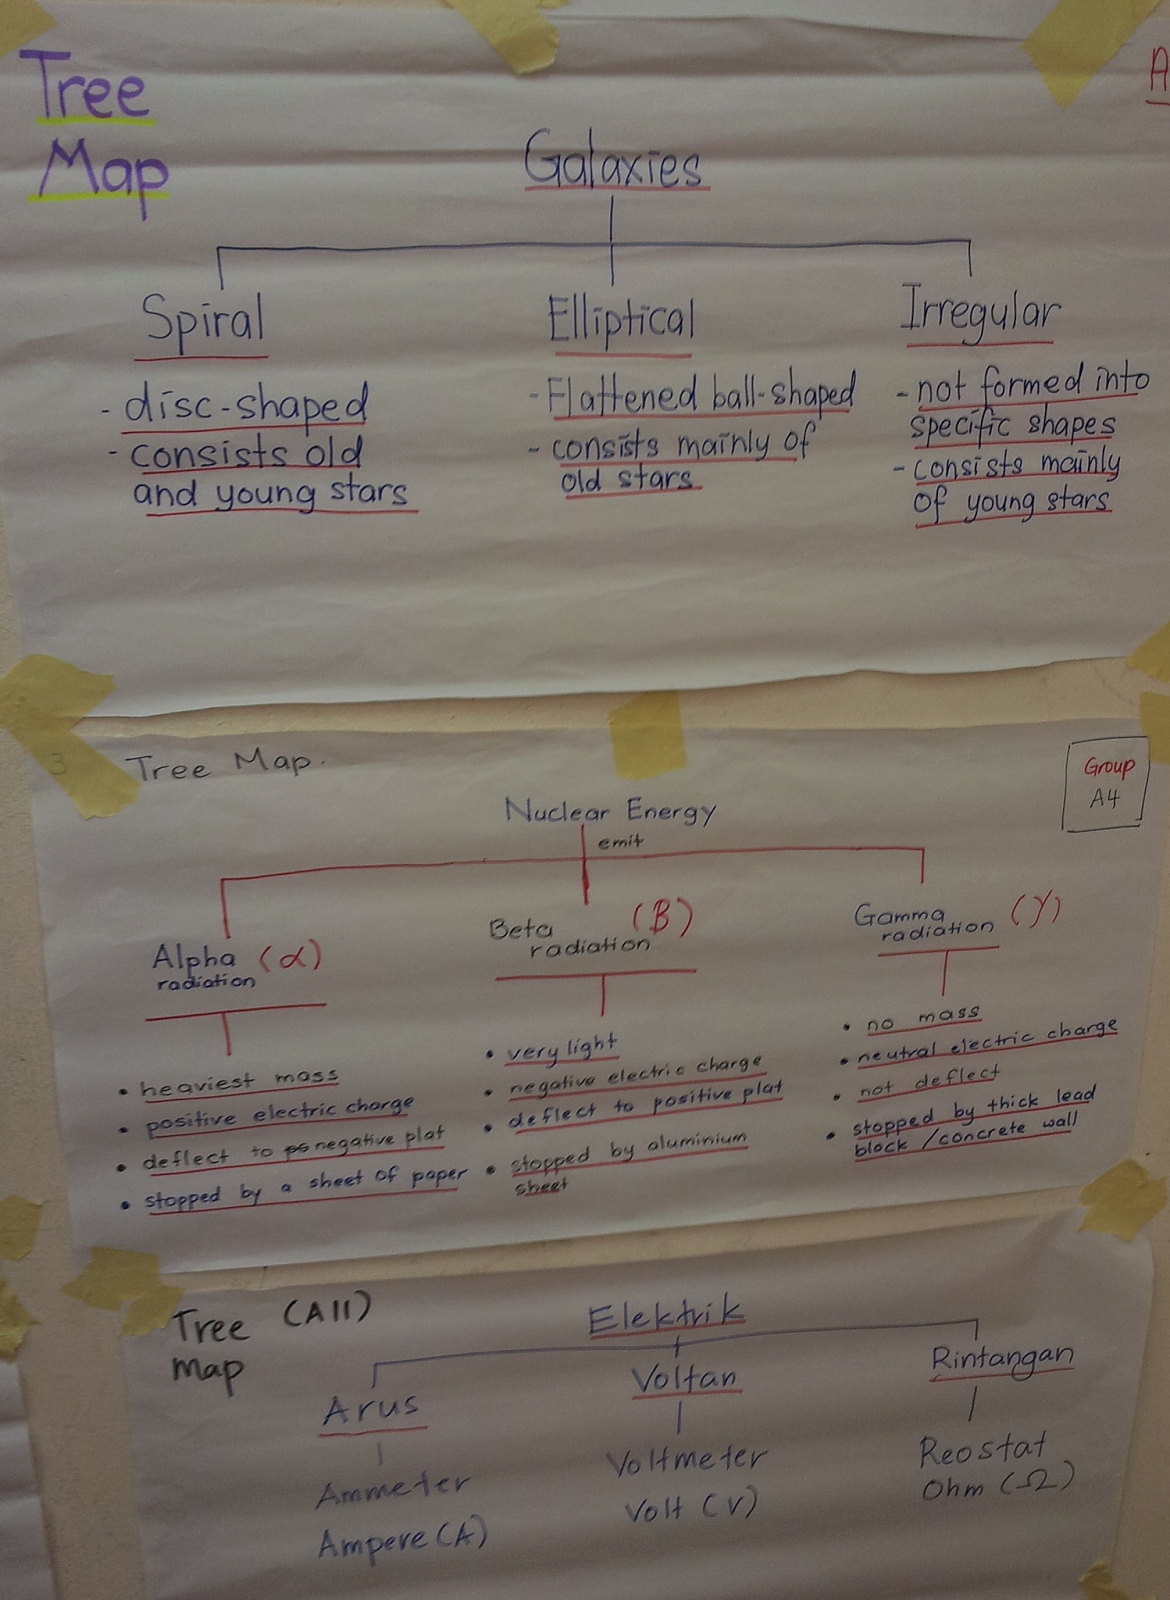 Tree
Map
A
Galaxies
Spiral
- disc-shaped
- consists old
and young stars
Elliptical
- Flattened ball-shaped
- consists mainly of
old stars
Irregular
- not formed into
specific shapes
- consists mainly
of young stars
3
Tree Map.
Group
A4
Nuclear Energy
emit
Alpha (α)
radiation
• heaviest mass
• positive electric charge
• deflect to negative plat
• stopped by a sheet of paper
Beta (β)
radiation
• very light
• negative electric charge
• deflect to positive plat
• stopped by aluminium
sheet
Gamma (γ)
radiation
• no mass
• neutral electric charge
• not deflect
• stopped by thick lead
block / concrete wall
Tree (A11)
map
Elektrik
Arus
Ammeter
Ampere (A)
Voltan
Voltmeter
Volt (V)
Rintangan
Reostat
Ohm (Ω)